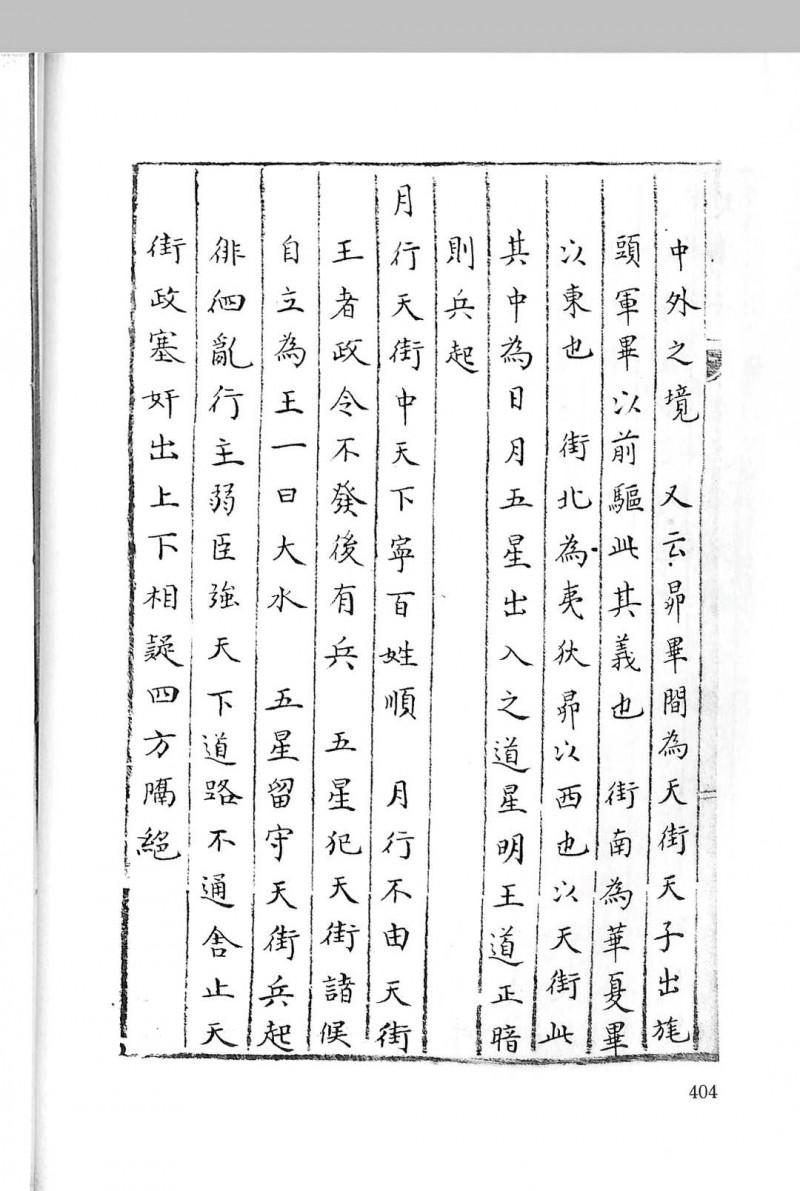 中外之境　又云昴畢間為天街天子出旄
頭軍畢以前驅此其義也　街南為華夏畢
以東也　街北為夷狄昴以西也以天街此
其中為日月五星出入之道星明王道正暗
則兵起
月行天街中天下寧百姓順　月行不由天街
王者政令不發後有兵　五星犯天街諸候
自立為王一曰大水　五星留守天街兵起
徘徊亂行主弱臣強天下道路不通舍止天
街政塞奸出上下相疑四方隔絕
404